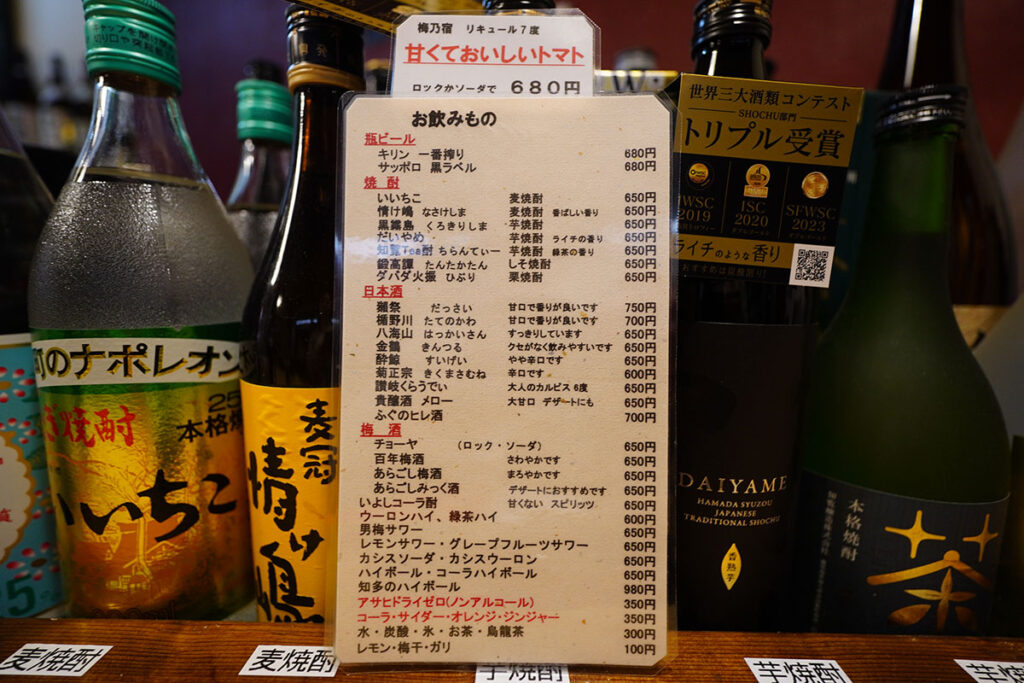 梅乃宿 リキュール7度
甘くておいしいトマト
ロックかソーダで 680円
お飲みもの
瓶ビール
キリン 一番搾り 680円
サッポロ 黒ラベル 680円
焼 酎
いいちこ 麦焼酎 650円
情け嶋 なさけしま 麦焼酎 香ばしい香り 650円
黒霧島 くろきりしま 芋焼酎 650円
だいやめ 芋焼酎 ライチの香り 650円
知覧Tea酎 ちらんてぃー 芋焼酎 緑茶の香り 650円
鍛高譚 たんたかたん しそ焼酎 650円
ダバダ火振 ひぶり 栗焼酎 650円
日本酒
獺祭 だっさい 甘口で香りが良いです 750円
楯野川 たてのかわ 甘口で香りが良いです 700円
八海山 はっかいさん すっきりしています 650円
金鶴 きんつる クセがなく飲みやすいです 650円
酔鯨 すいげい やや辛口です 650円
菊正宗 きくまさむね 辛口です 600円
讃岐くらうでぃ 大人のカルピス 6度 650円
貴醸酒 メロー 大甘口 デザートにも 650円
ふぐのヒレ酒 700円
梅 酒
チョーヤ (ロック・ソーダ) 650円
百年梅酒 さわやかです 650円
あらごし梅酒 まろやかです 650円
あらごしみっく酒 デザートにおすすめです 650円
いよしコーラ酎 甘くない スピリッツ 650円
ウーロンハイ、緑茶ハイ 600円
男梅サワー 650円
レモンサワー・グレープフルーツサワー 650円
カシスソーダ・カシスウーロン 650円
ハイボール・コーラハイボール 650円
知多のハイボール 980円
アサヒドライゼロ(ノンアルコール) 350円
コーラ・サイダー・オレンジ・ジンジャー 350円
水・炭酸・氷・お茶・烏龍茶 300円
レモン・梅干・ガリ 100円
世界三大酒類コンテスト
SHOCHU部門
トリプル受賞
IWSC
2019
ISC
2020
SFWSC
2023
ライチのような香り
おすすめは炭酸割り!
DAIYAME
HAMADA SYUZOU
JAPANESE
TRADITIONAL SHOCHU
香熟芋
本格焼酎
茶
町のナポレオン
焼酎
25
本格焼
いいちこ
麦冠
情け嶋
麦焼酎
麦焼酎
芋焼酎
芋焼酎
芋焼